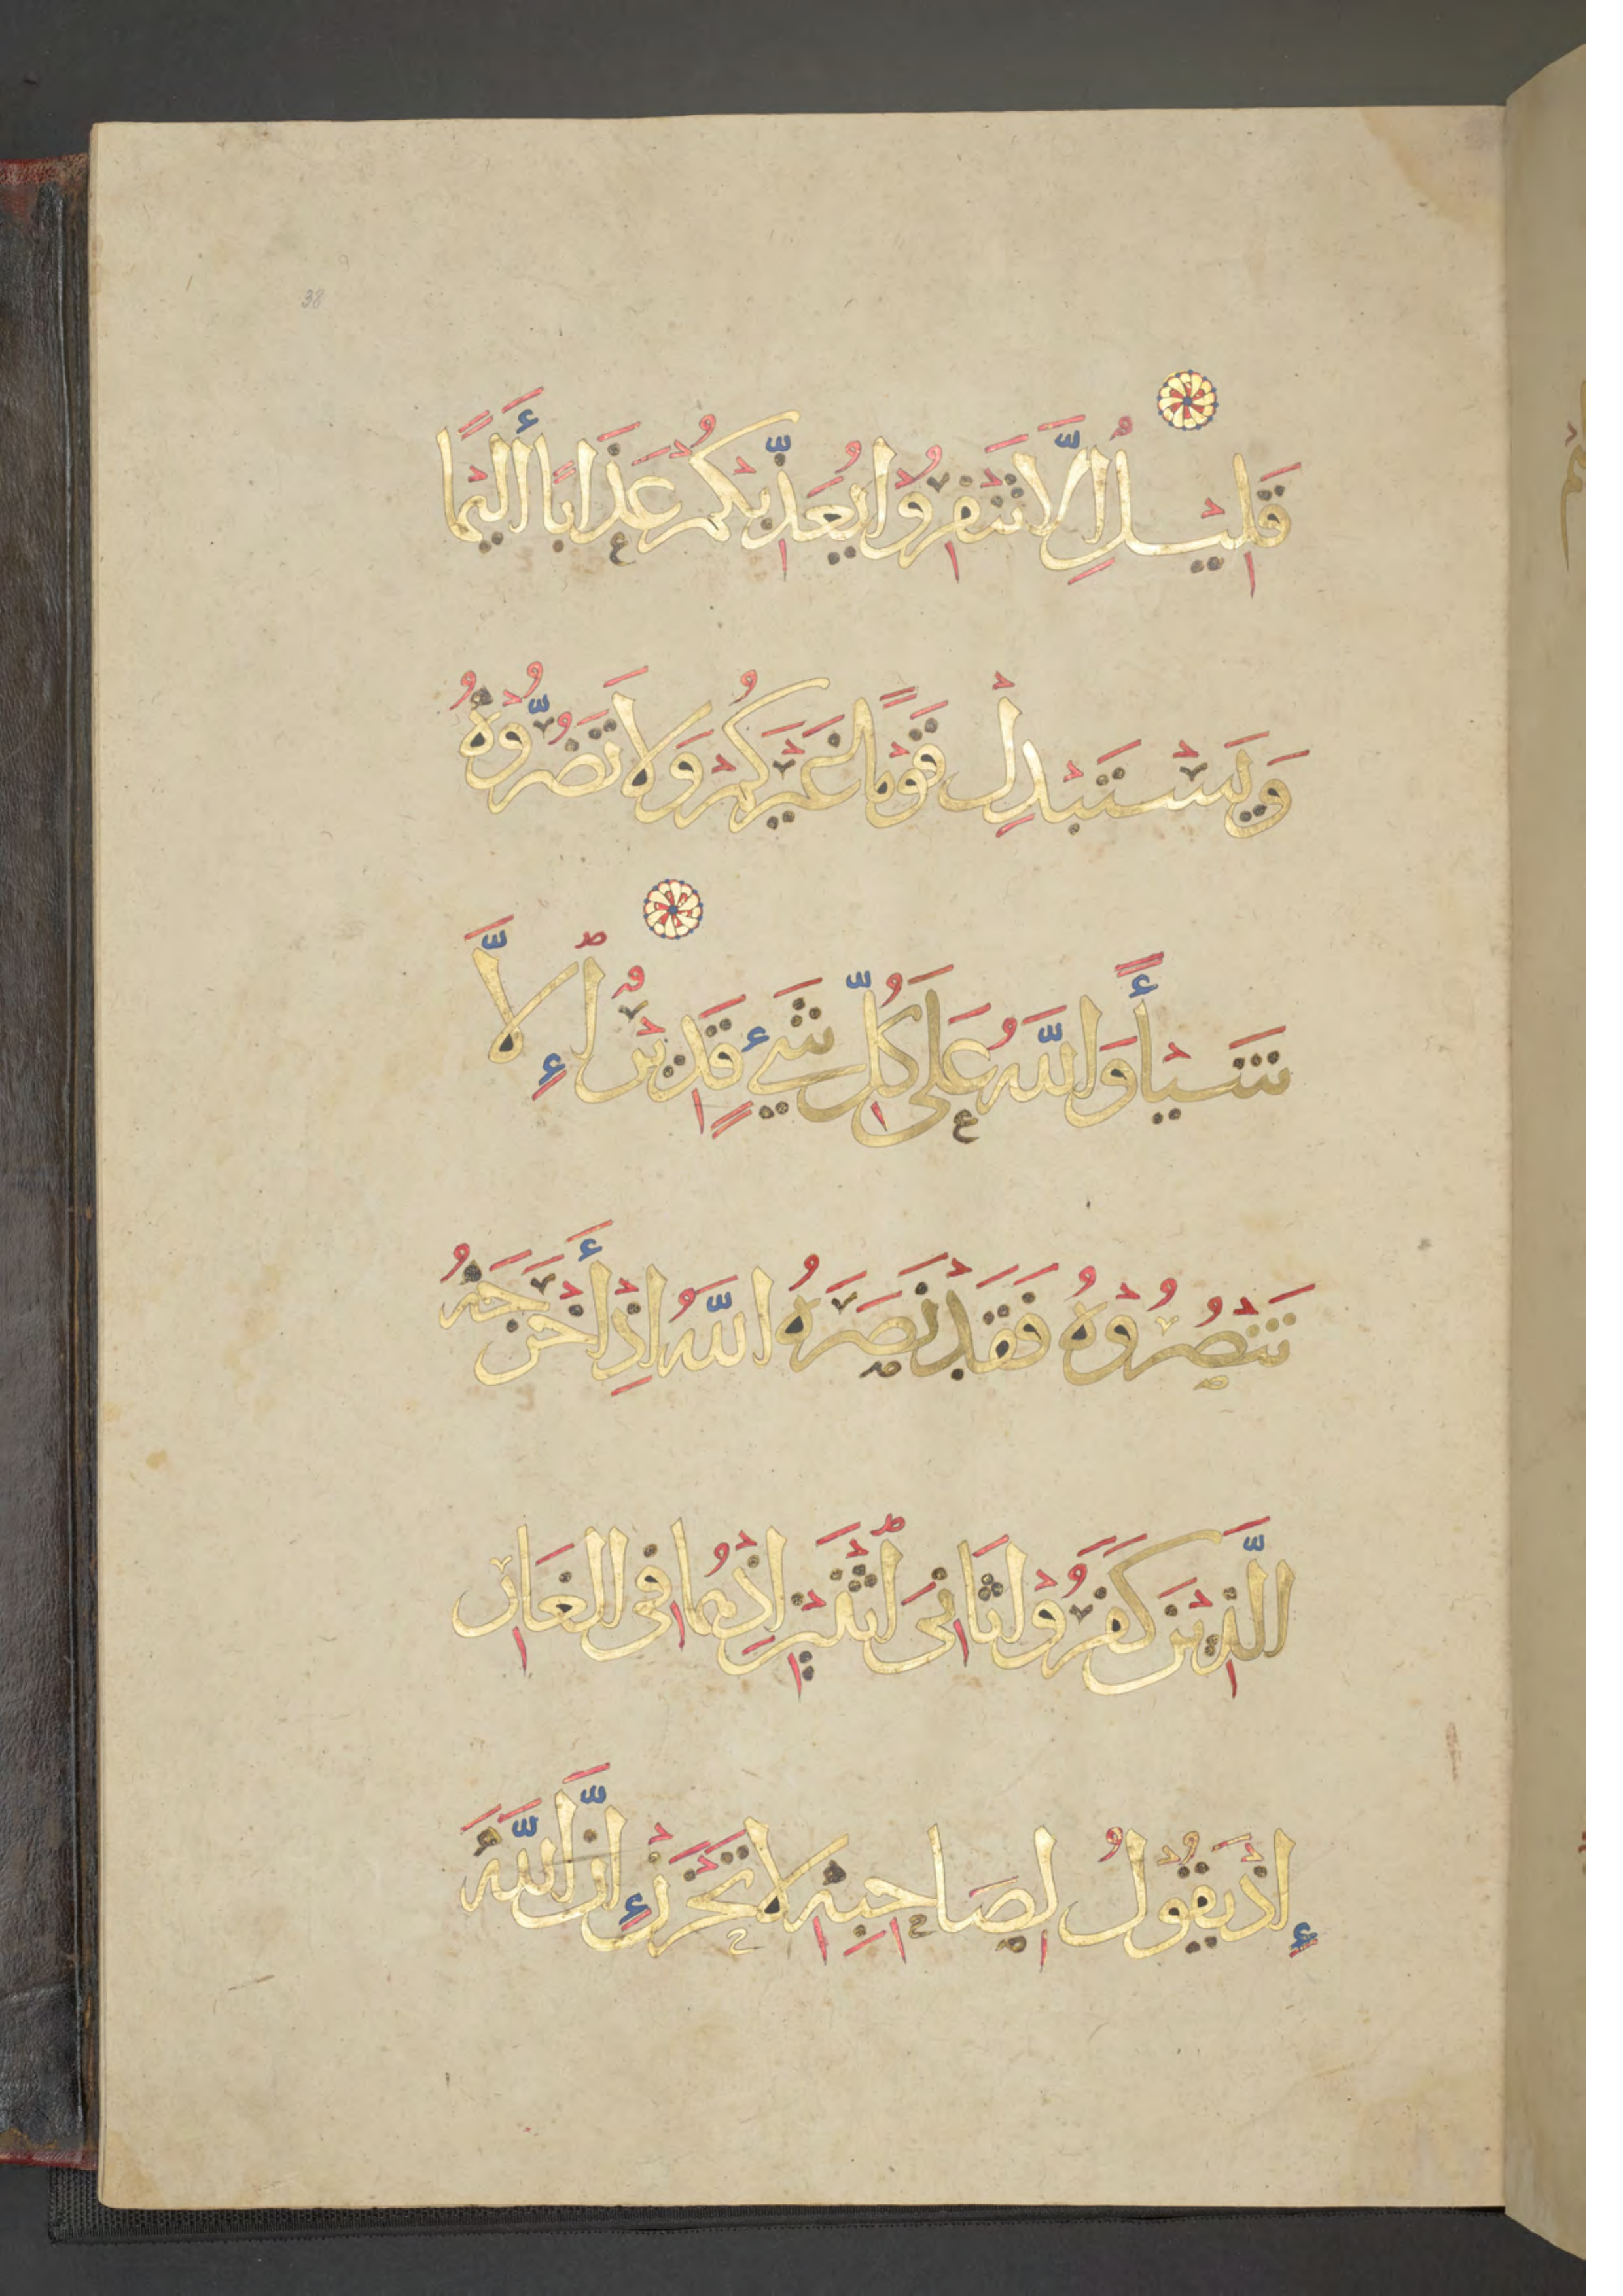 38
قَلِيْلٌ اِلَّا تَنْفِرُوْا يُعَذِّبْكُمْ عَذَابًا أَلِيْمًا
وَيَسْتَبْدِلْ قَوْمًا غَيْرَكُمْ وَلَا تَضُرُّوْهُ
شَيْأً وَاللَّهُ عَلَى كُلِّ شَيْءٍ قَدِيْرٌ إِلَّا
تَنْصُرُوْهُ فَقَدْ نَصَرَهُ اللَّهُ اِذْ أَخْرَجَهُ
الَّذِيْنَ كَفَرُوْا ثَانِيَ اثْنَيْنِ اِذْ هُمَا فِي الْغَارِ
إِذْ يَقُوْلُ لِصَاحِبِهِ لَا تَحْزَنْ إِنَّ اللَّهَ